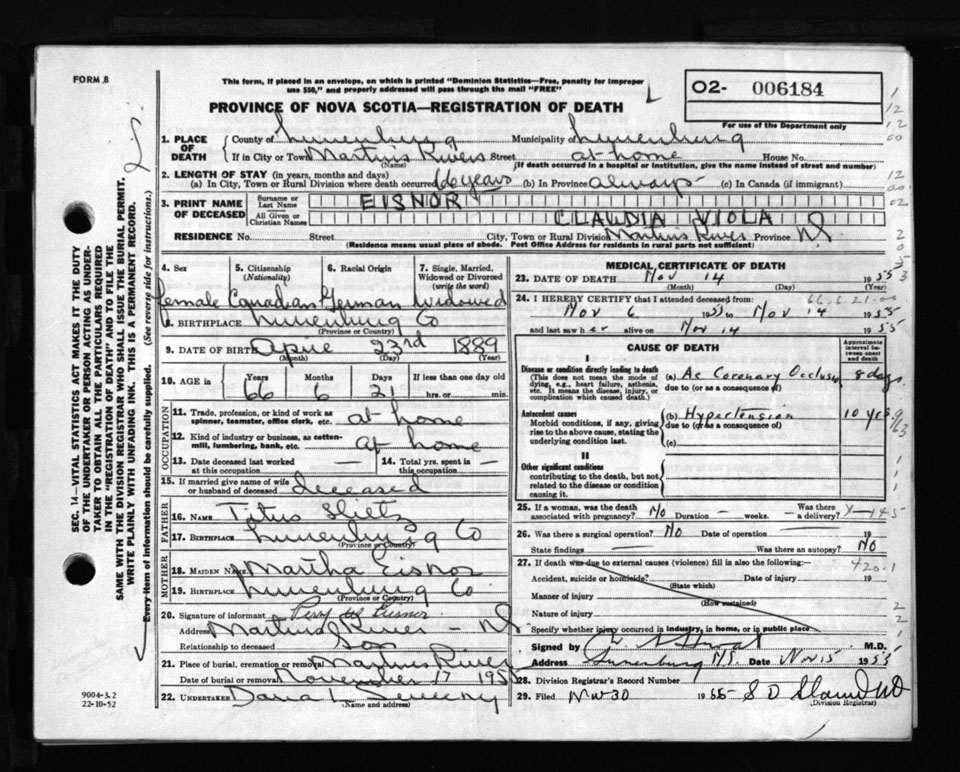 FORM 8
This form, if placed in an envelope, on which is printed "Dominion Statistics—Free, penalty for improper
use $50," and properly addressed will pass through the mail "FREE"
PROVINCE OF NOVA SCOTIA—REGISTRATION OF DEATH
O2- 006184
For use of the Department only
1. PLACE OF DEATH
County of Lunenburg Municipality of Lunenburg
If in City or Town Martins Rivers Street at home House No.
(Name) (If death occurred in a hospital or institution, give the name instead of street and number)
2. LENGTH OF STAY (in years, months and days)
(a) In City, Town or Rural Division where death occurred 66 years (b) In Province always (c) In Canada (if immigrant)
3. PRINT NAME OF DECEASED
Surname or Last Name EISNOR
All Given or Christian Names CLAUDIA VIOLA
RESIDENCE No. Street City, Town or Rural Division Martins River Province NS
(Residence means usual place of abode. Post Office Address for residents in rural parts not sufficient)
4. Sex
5. Citizenship (Nationality)
6. Racial Origin
7. Single, Married, Widowed or Divorced (write the word)
female Canadian German Widowed
BIRTHPLACE Lunenburg Co
(Province or Country)
9. DATE OF BIRTH April 23rd 1889
(Month) (Day) (Year)
10. AGE in Years Months Days If less than one day old
66 6 21 hrs. or min.
OCCUPATION
11. Trade, profession, or kind of work as
spinner, teamster, office clerk, etc. at home
12. Kind of industry or business, as cotton-
mill, lumbering, bank, etc. at home
13. Date deceased last worked
at this occupation —
14. Total yrs. spent in
this occupation —
15. If married give name of wife
or husband of deceased deceased
FATHER
16. NAME Titus
17. BIRTHPLACE Lunenburg Co
(Province or Country)
MOTHER
18. MAIDEN NAME Martha Eisnor
19. BIRTHPLACE Lunenburg Co
(Province or Country)
20. Signature of informant Eisnor
Address Martins River – NS
Relationship to deceased Son
21. Place of burial, cremation or removal Martins River
Date of burial or removal November 17 1955
22. UNDERTAKER Dana L
(Name and address)
9004-3.2
22-10-52
SEC. 14—VITAL STATISTICS ACT MAKES IT THE DUTY
OF THE UNDERTAKER OR PERSON ACTING AS UNDER-
TAKER TO OBTAIN ALL THE PARTICULARS REQUIRED
IN THE "REGISTRATION OF DEATH" AND TO FILE THE
SAME WITH THE DIVISION REGISTRAR WHO SHALL ISSUE THE BURIAL PERMIT.
WRITE PLAINLY WITH UNFADING INK. THIS IS A PERMANENT RECORD.
Every item of information should be carefully supplied. (See reverse side for instructions.)
MEDICAL CERTIFICATE OF DEATH
23. DATE OF DEATH Nov 14 1955
(Month) (Day) (Year)
66.6.21
24. I HEREBY CERTIFY that I attended deceased from:
Nov 6 1955 to Nov 14 1955
and last saw her alive on Nov 14 1955
CAUSE OF DEATH
Approximate interval between onset and death
I
Disease or condition directly leading to death
(This does not mean the mode of
dying, e.g., heart failure, asthenia,
etc. It means the disease, injury, or
complication which caused death.)
(a) Ac Coronary Occlusion 8 days
due to (or as a consequence of)
Antecedent causes
Morbid conditions, if any, giving
rise to the above cause, stating the
underlying condition last.
(b) Hypertension 10 yrs
due to (or as a consequence of)
(c)
II
Other significant conditions
contributing to the death, but not
related to the disease or condition
causing it.
25. If a woman, was the death
associated with pregnancy? No Duration — weeks. Was there
a delivery?
26. Was there a surgical operation? No Date of operation 19
State findings Was there an autopsy? No
420.1
27. If death was due to external causes (violence) fill in also the following:
Accident, suicide or homicide? Date of injury 19
(State which)
Manner of injury
(How sustained)
Nature of injury
Specify whether injury occurred in industry, in home, or in public place
Signed by M.D.
Address Lunenburg N.S. Date Nov 15 1955
28. Division Registrar's Record Number
29. Filed Nov 30 1955
(Division Registrar)